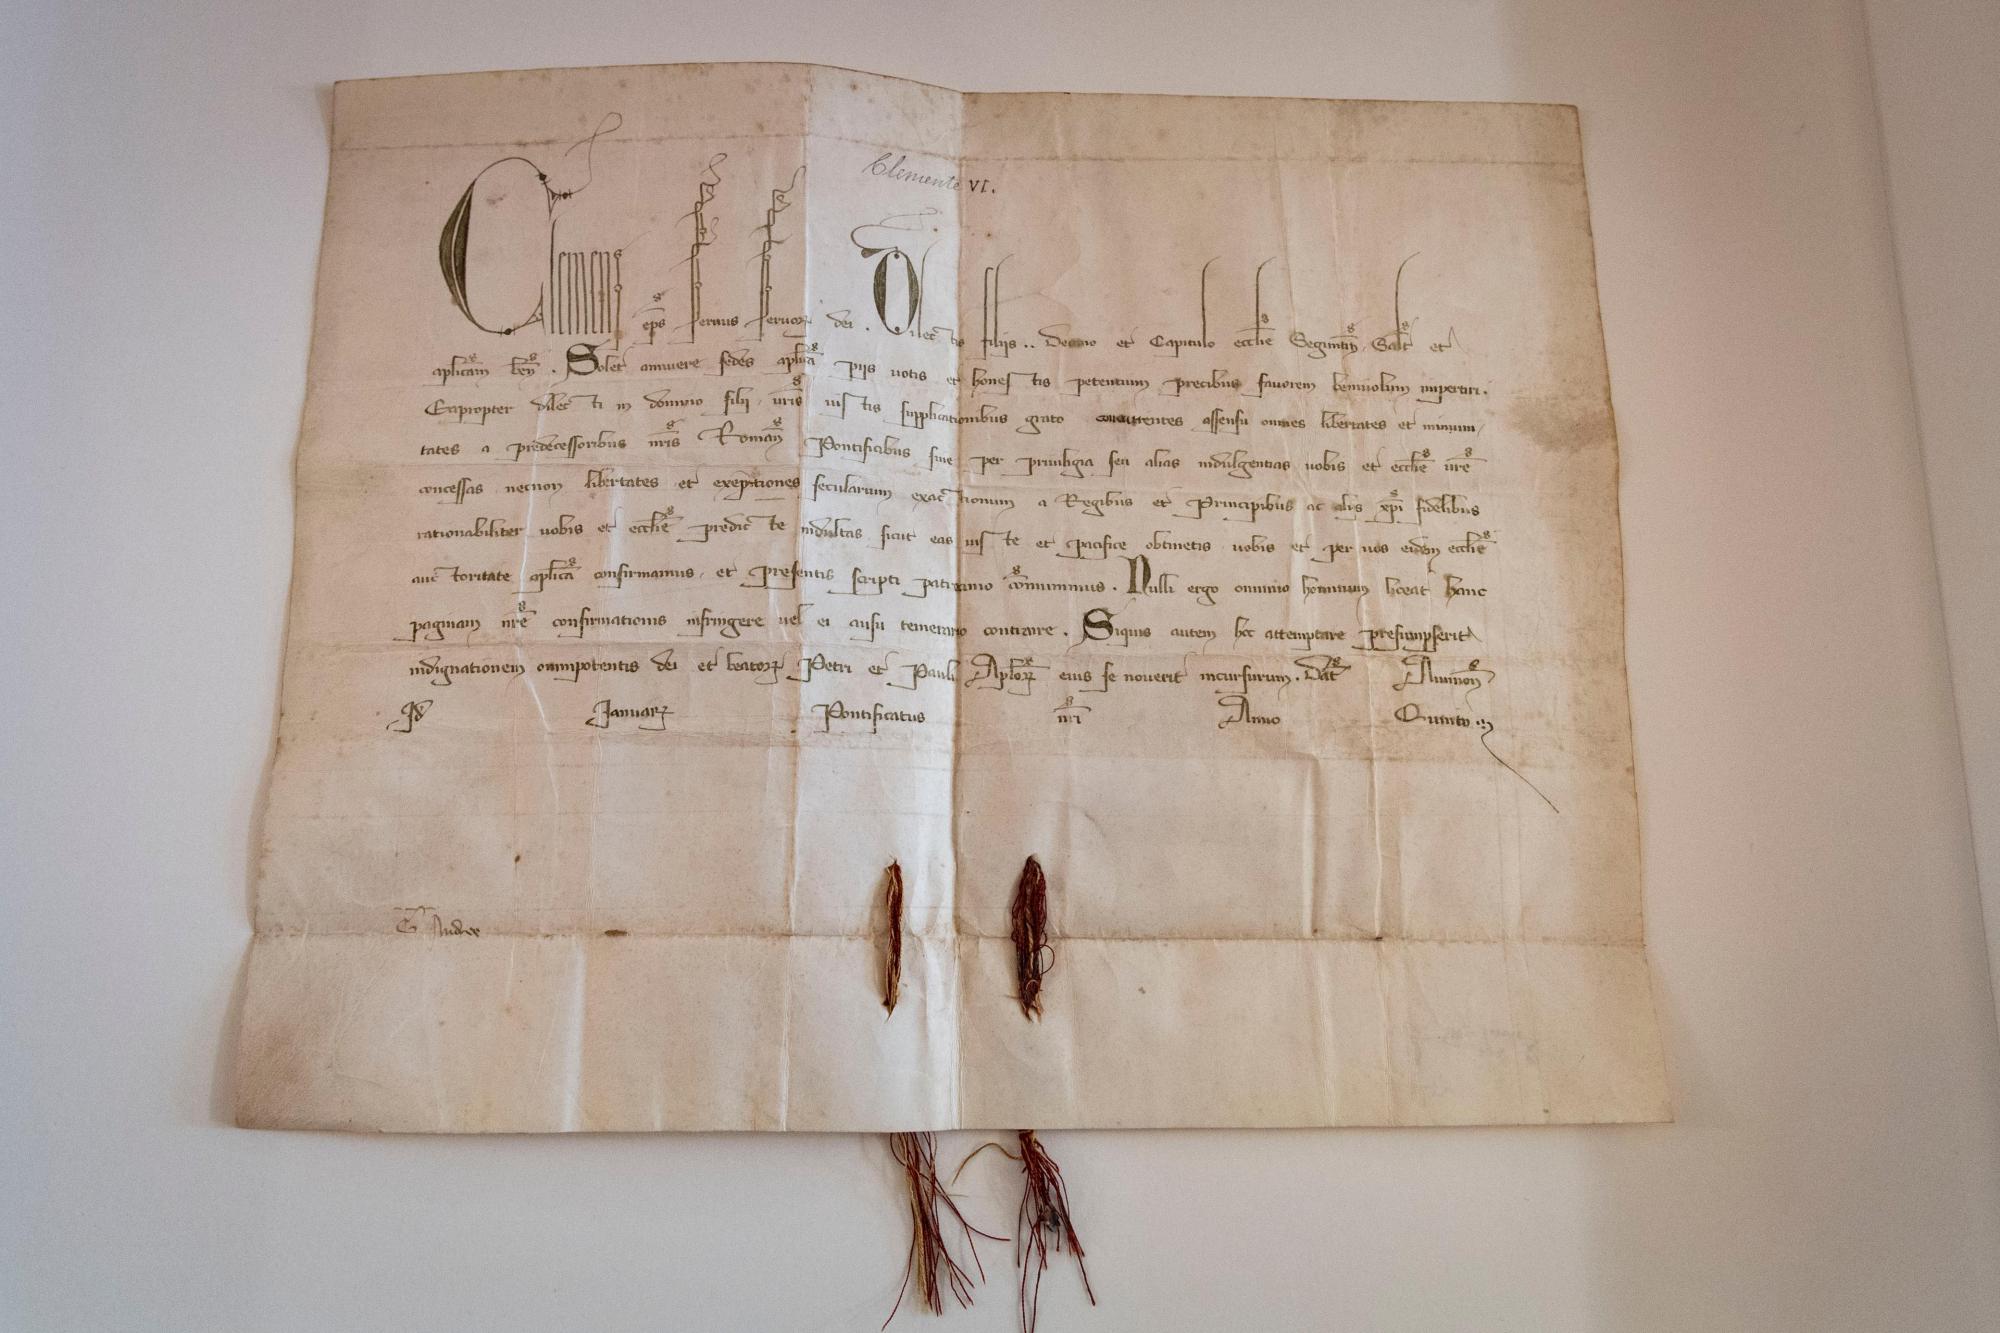 Clemente VI.
Clemens eps seruus seruoꝝ dei. Dilectis filiis.. Decano et Capitulo ecclie Seguntin̄ Salt et
aplicam ben̄. Solet annuere sedes aplica piis uotis et honestis petentium precibus fauorem beniuolum impertiri.
Eapropter dilecti in domino filii uris iustis supplicationibus grato concurrentes assensu omnes libertates et inmuni/
tates a predecessoribus nris Roman̄ Pontificibus siue per priuilegia seu alias indulgentias uobis et ecclie ure
concessas necnon libertates et exemptiones secularium exactionum a Regibus et Principibus ac aliis xpi fidelibus
rationabiliter uobis et ecclie predicte indultas sicut eas iuste et pacifice obtinetis uobis et per uos eidem ecclie
auctoritate aplica confirmamus, et presentis scripti patrocinio cōmunimus. Nulli ergo omnino hominum liceat hanc
paginam nre confirmationis infringere uel ei ausu temerario contraire. Siquis autem hoc attemptare presumpserit
indignationem omnipotentis dei et beatoꝝ Petri et Pauli Aploꝝ eius se nouerit incursurum. Dat Auinion̄
Id Januarꝝ Pontificatus nri Anno Quinto
Andree